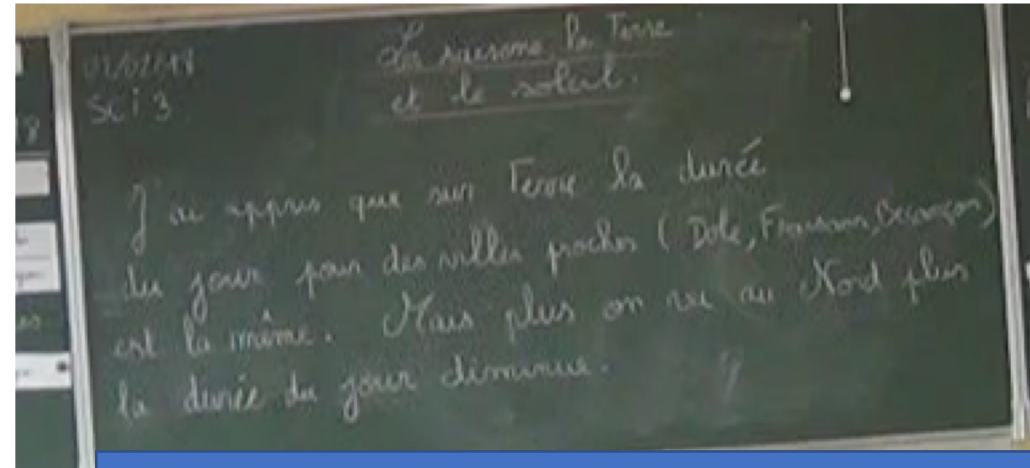 Les saisons la Terre
SCi 3
et le soleil.
J'ai appris que sur Terre la durée
du jour pour des villes proches (Dole, Besançon)
est la même. Mais plus on va au Nord plus
la durée du jour diminue.